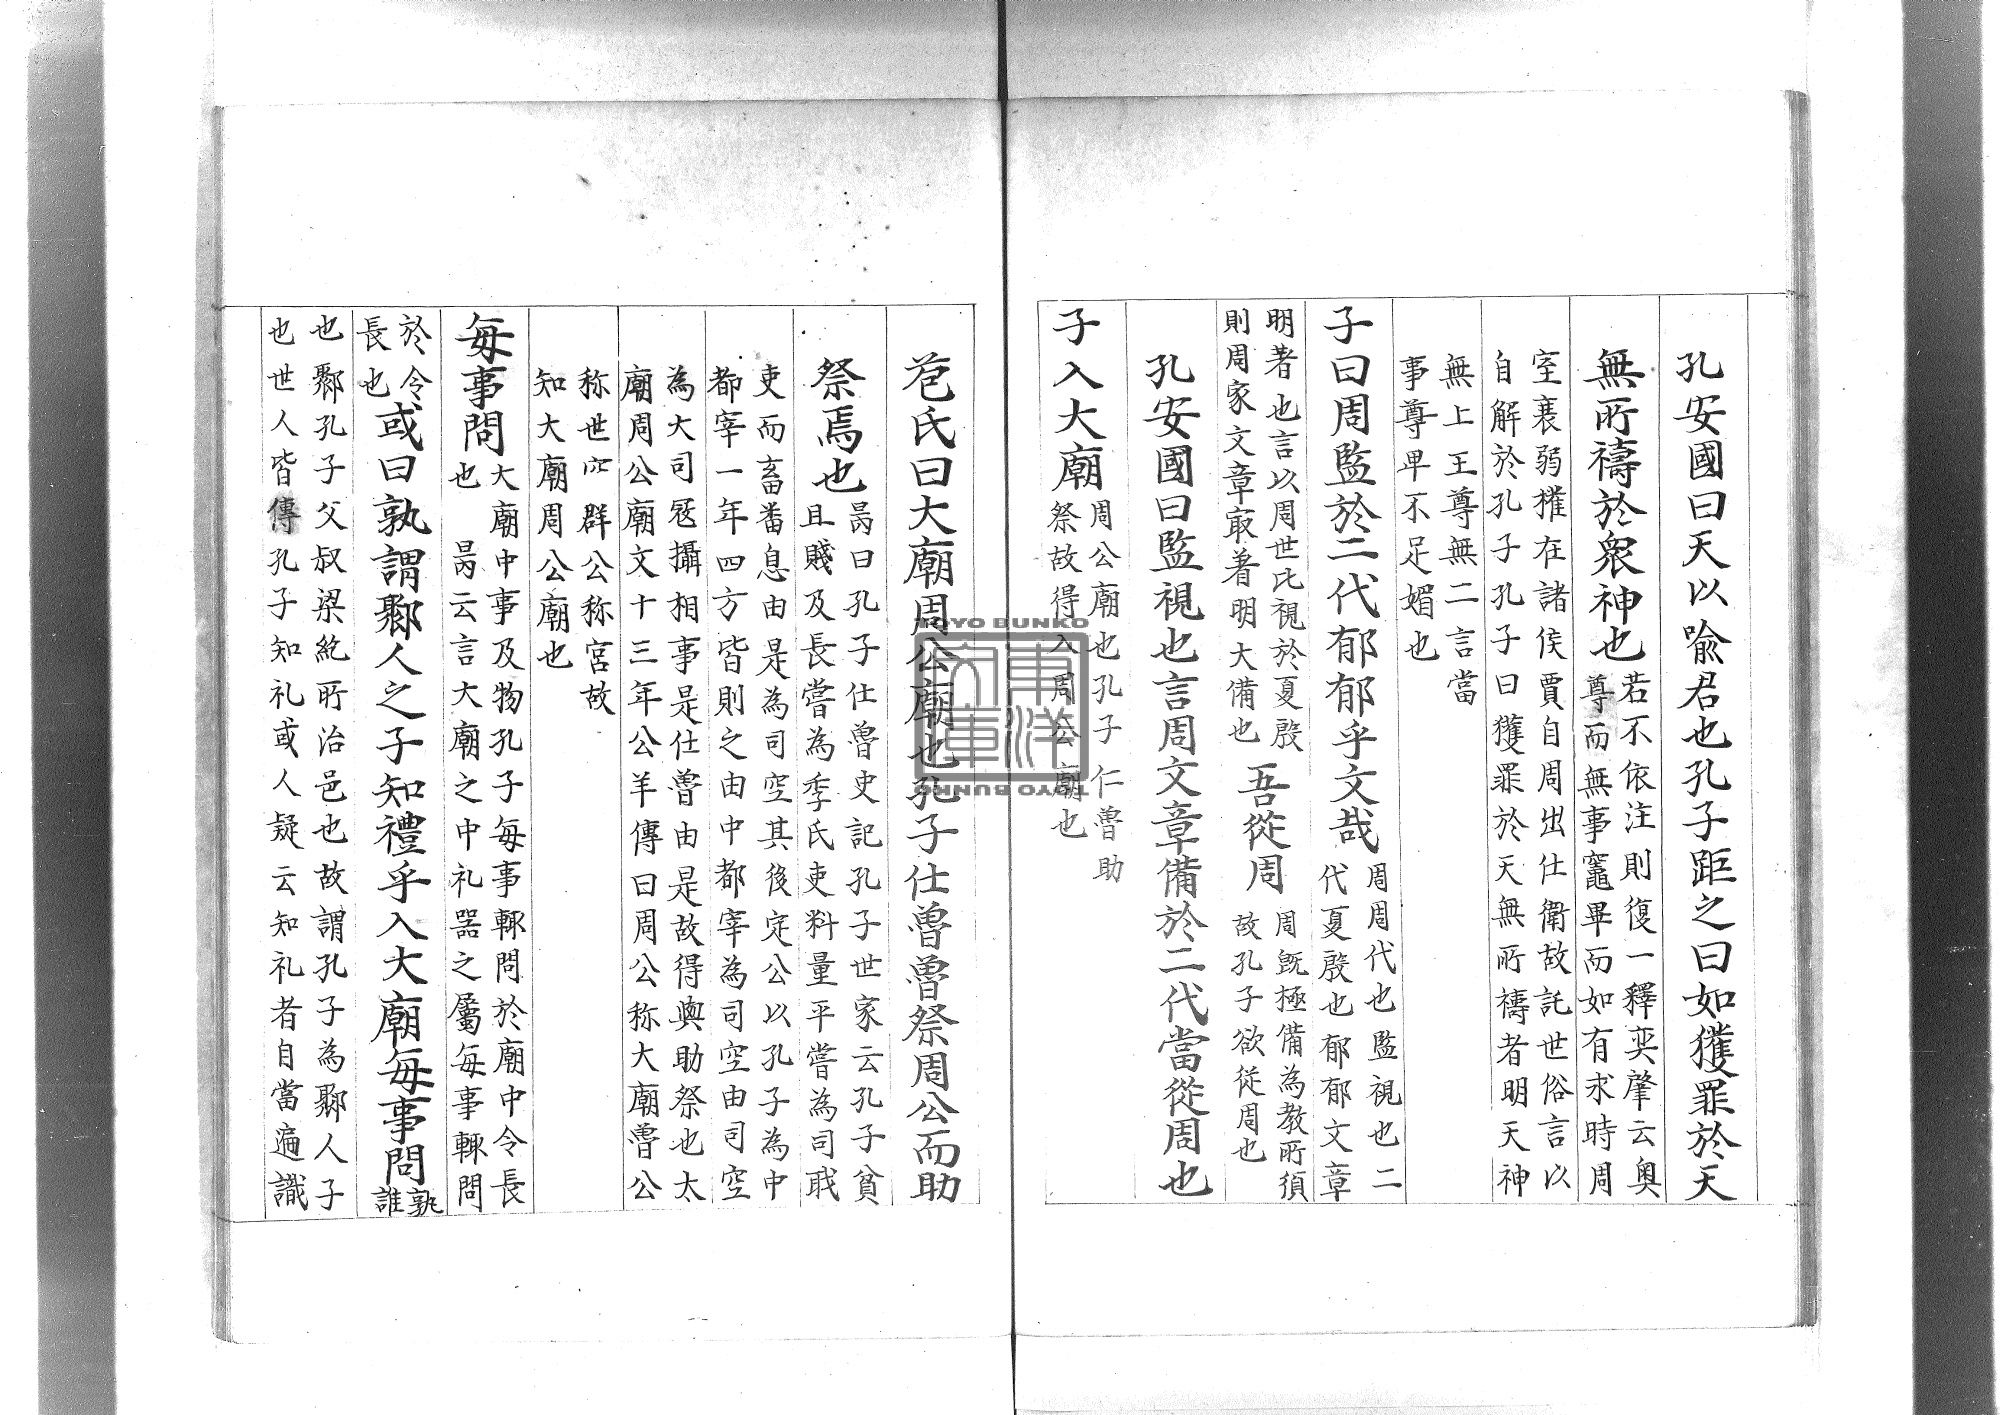 孔安國曰天以喻君也孔子距之曰如獲罪於天
無所禱於衆神也
若不依注則復一釋奕肇云奧
尊而無事竈畢而如有求時周
室衰弱權在諸侯賈自周出仕衛故託世俗言以
自解於孔子孔子曰獲罪於天無所禱者明天神
無上王尊無二言當
事尊卑不足媚也
子曰周監於二代郁郁乎文哉
周周代也監視也二
代夏殷也郁郁文章
明著也言以周世比視於夏殷
則周家文章㝡著明大備也
吾從周
周既極備為教所須
故孔子欲從周也
孔安國曰監視也言周文章備於二代當從周也
子入大廟
周公廟也孔子仁魯助
祭故得入周公廟也
苞氏曰大廟周公廟也孔子仕魯魯祭周公而助
祭焉也
昺曰孔子仕魯史記孔子世家云孔子貧
且賤及長嘗為季氏吏料量平嘗為司職
吏而畜蕃息由是為司空其後定公以孔子為中
都宰一年四方皆則之由中都宰為司空由司空
為大司寇攝相事是仕魯由是故得與助祭也太
廟周公廟文十三年公羊傳曰周公称大廟魯公
称世室群公称宮故
知大廟周公廟也
每事問
大廟中事及物孔子每事輙問於廟中令長
也　昺云言大廟之中礼器之屬每事輙問
於令
長也
或曰孰謂鄹人之子知禮乎入大廟每事問
孰
誰
也鄹孔子父叔梁紇所治邑也故謂孔子為鄹人子
也世人皆傳孔子知礼或人疑云知礼者自當遍識
TOYO BUNKO
東洋文庫
TOYO BUNKO